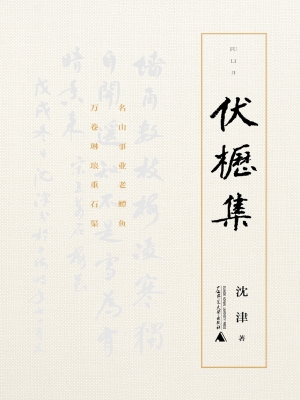 伏櫪集
沈津
著
广西师范大学出版社
名山事业老蟫鱼
万卷琳琅重石渠
墙角数枝梅凌寒獨
自開遥知不是雪為有
暗香来